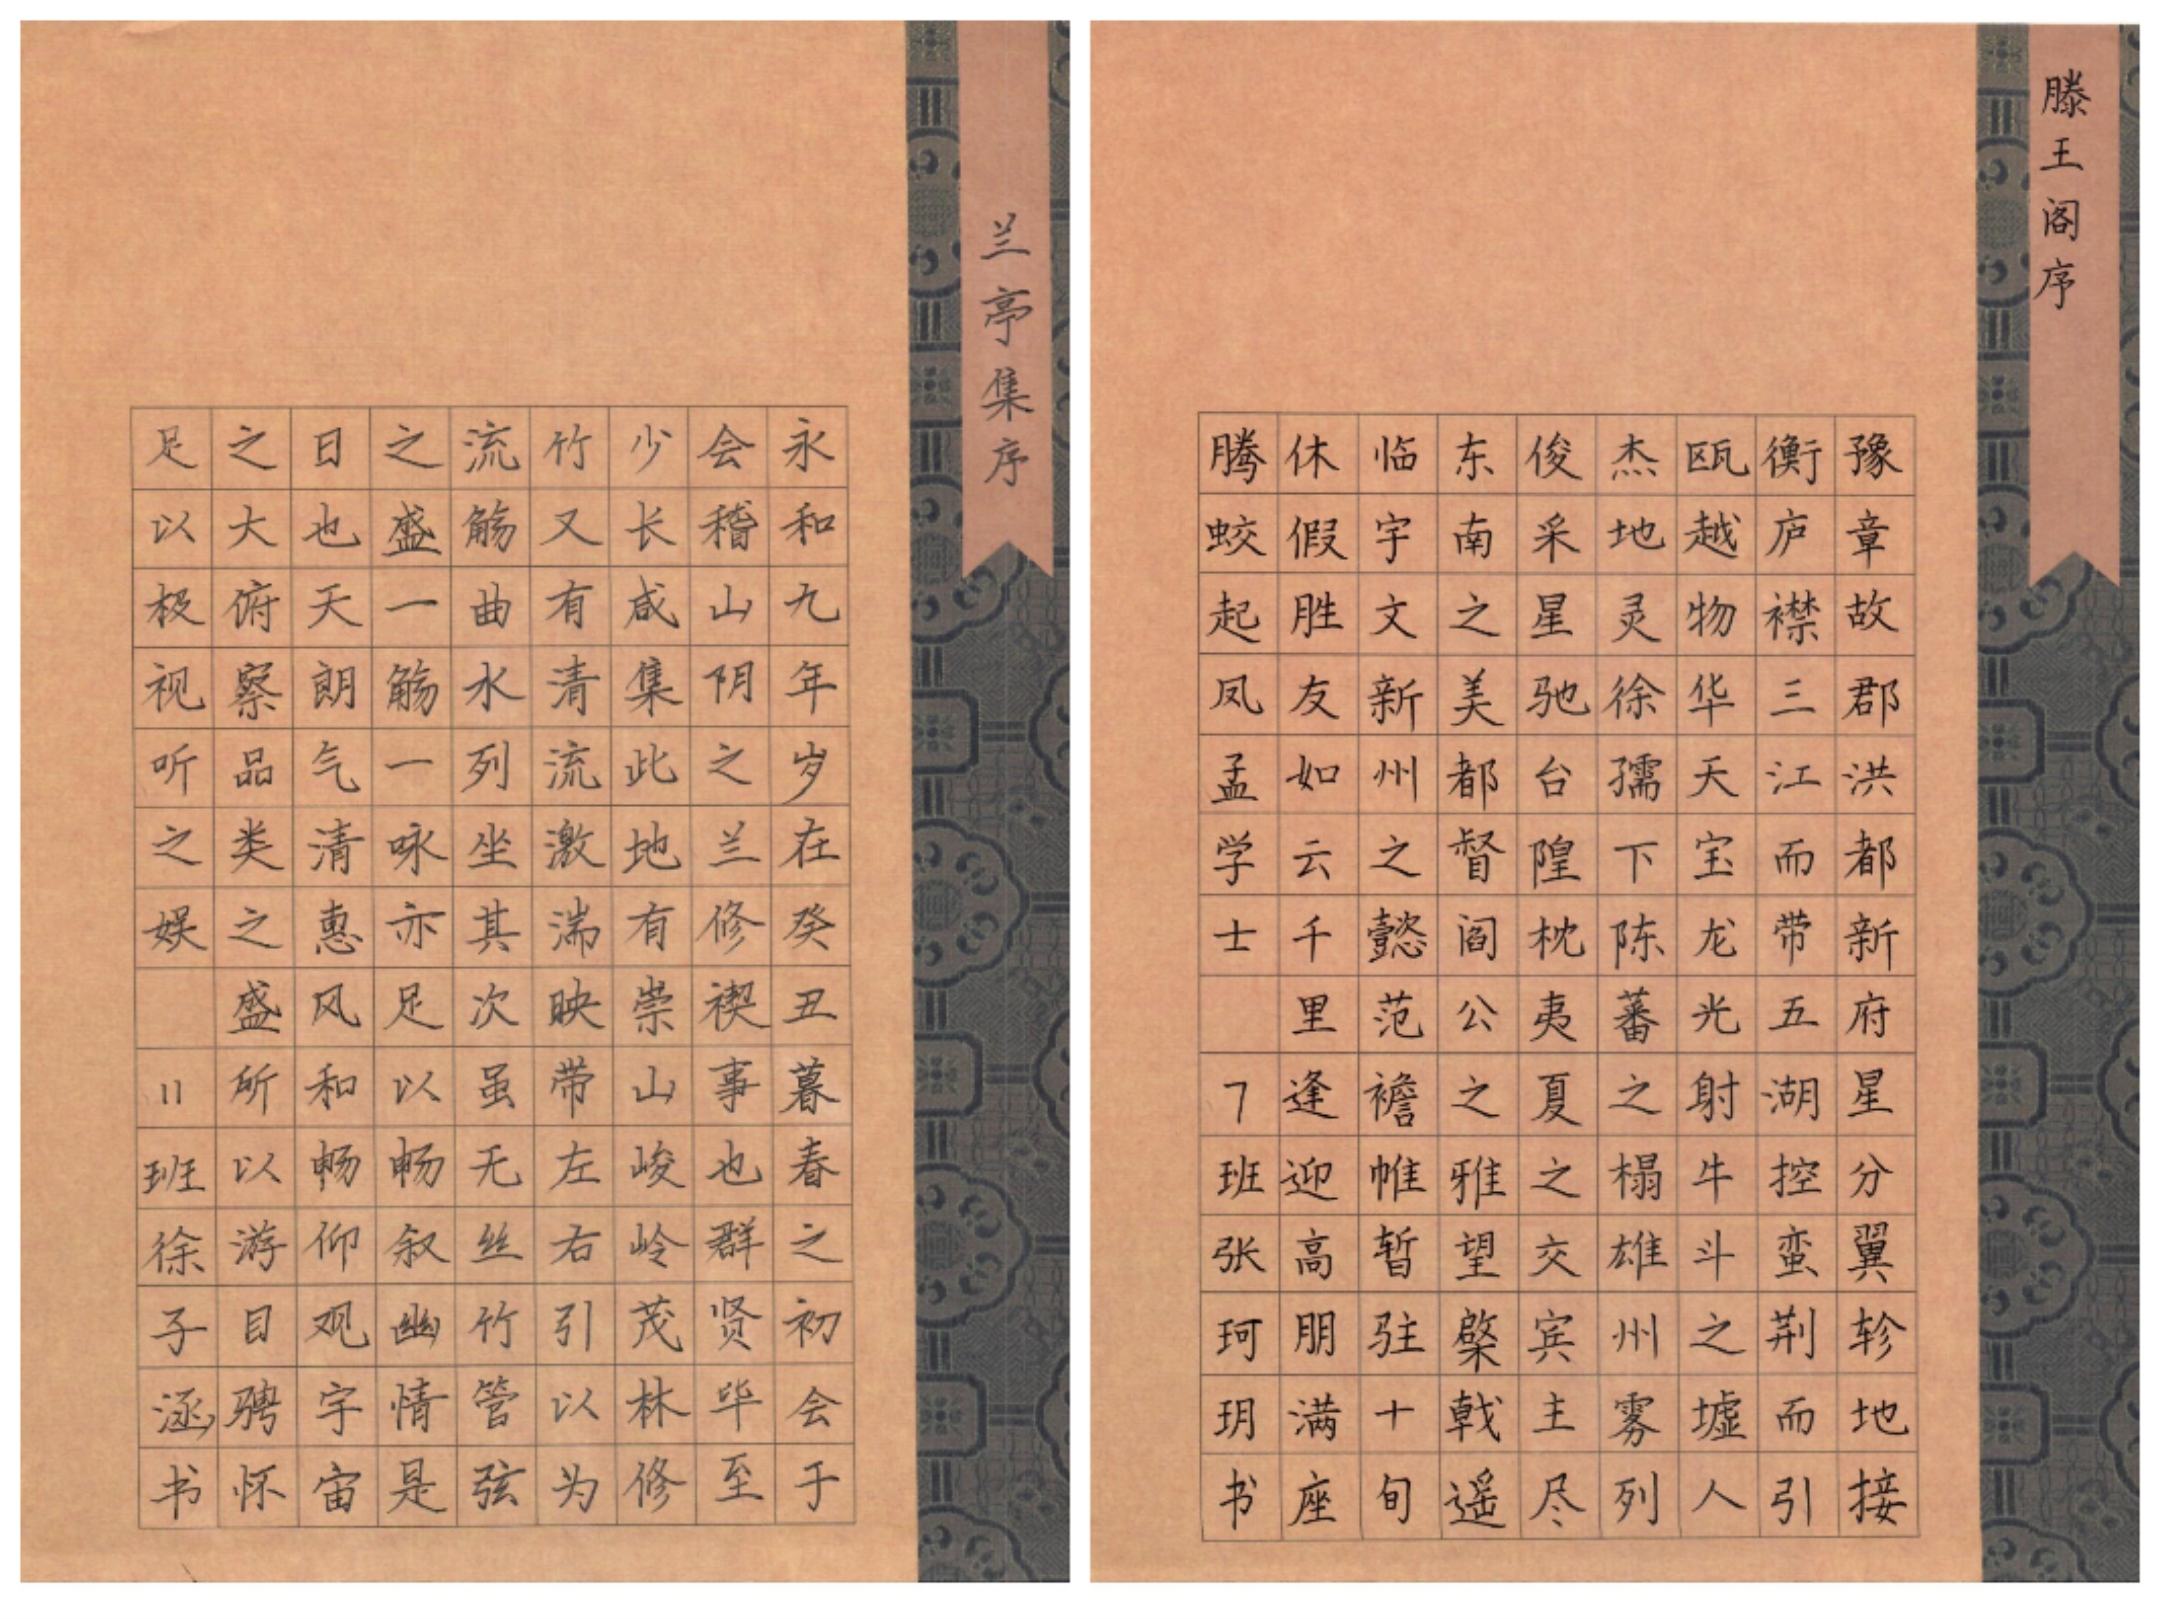 兰亭集序
永和九年岁在癸丑暮春之初会于
会稽山阴之兰修禊事也群贤毕至
少长咸集此地有崇山峻岭茂林修
竹又有清流激湍映带左右引以为
流觞曲水列坐其次虽无丝竹管弦
之盛一觞一咏亦足以畅叙幽情是
日也天朗气清惠风和畅仰观宇宙
之大俯察品类之盛所以游目骋怀
足以极视听之娱 11班徐子涵书
滕王阁序
豫章故郡洪都新府星分翼轸地接
衡庐襟三江而带五湖控蛮荆而引
瓯越物华天宝龙光射牛斗之墟人
杰地灵徐孺下陈蕃之榻雄州雾列
俊采星驰台隍枕夷夏之交宾主尽
东南之美都督阎公之雅望棨戟遥
临宇文新州之懿范襜帷暂驻十旬
休假胜友如云千里逢迎高朋满座
腾蛟起凤孟学士 7班张珂玥书